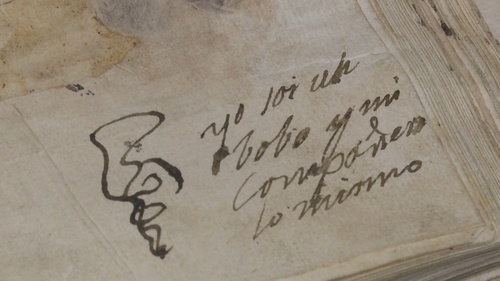 yo soi un
bobo y mi
compañero
lo mismo